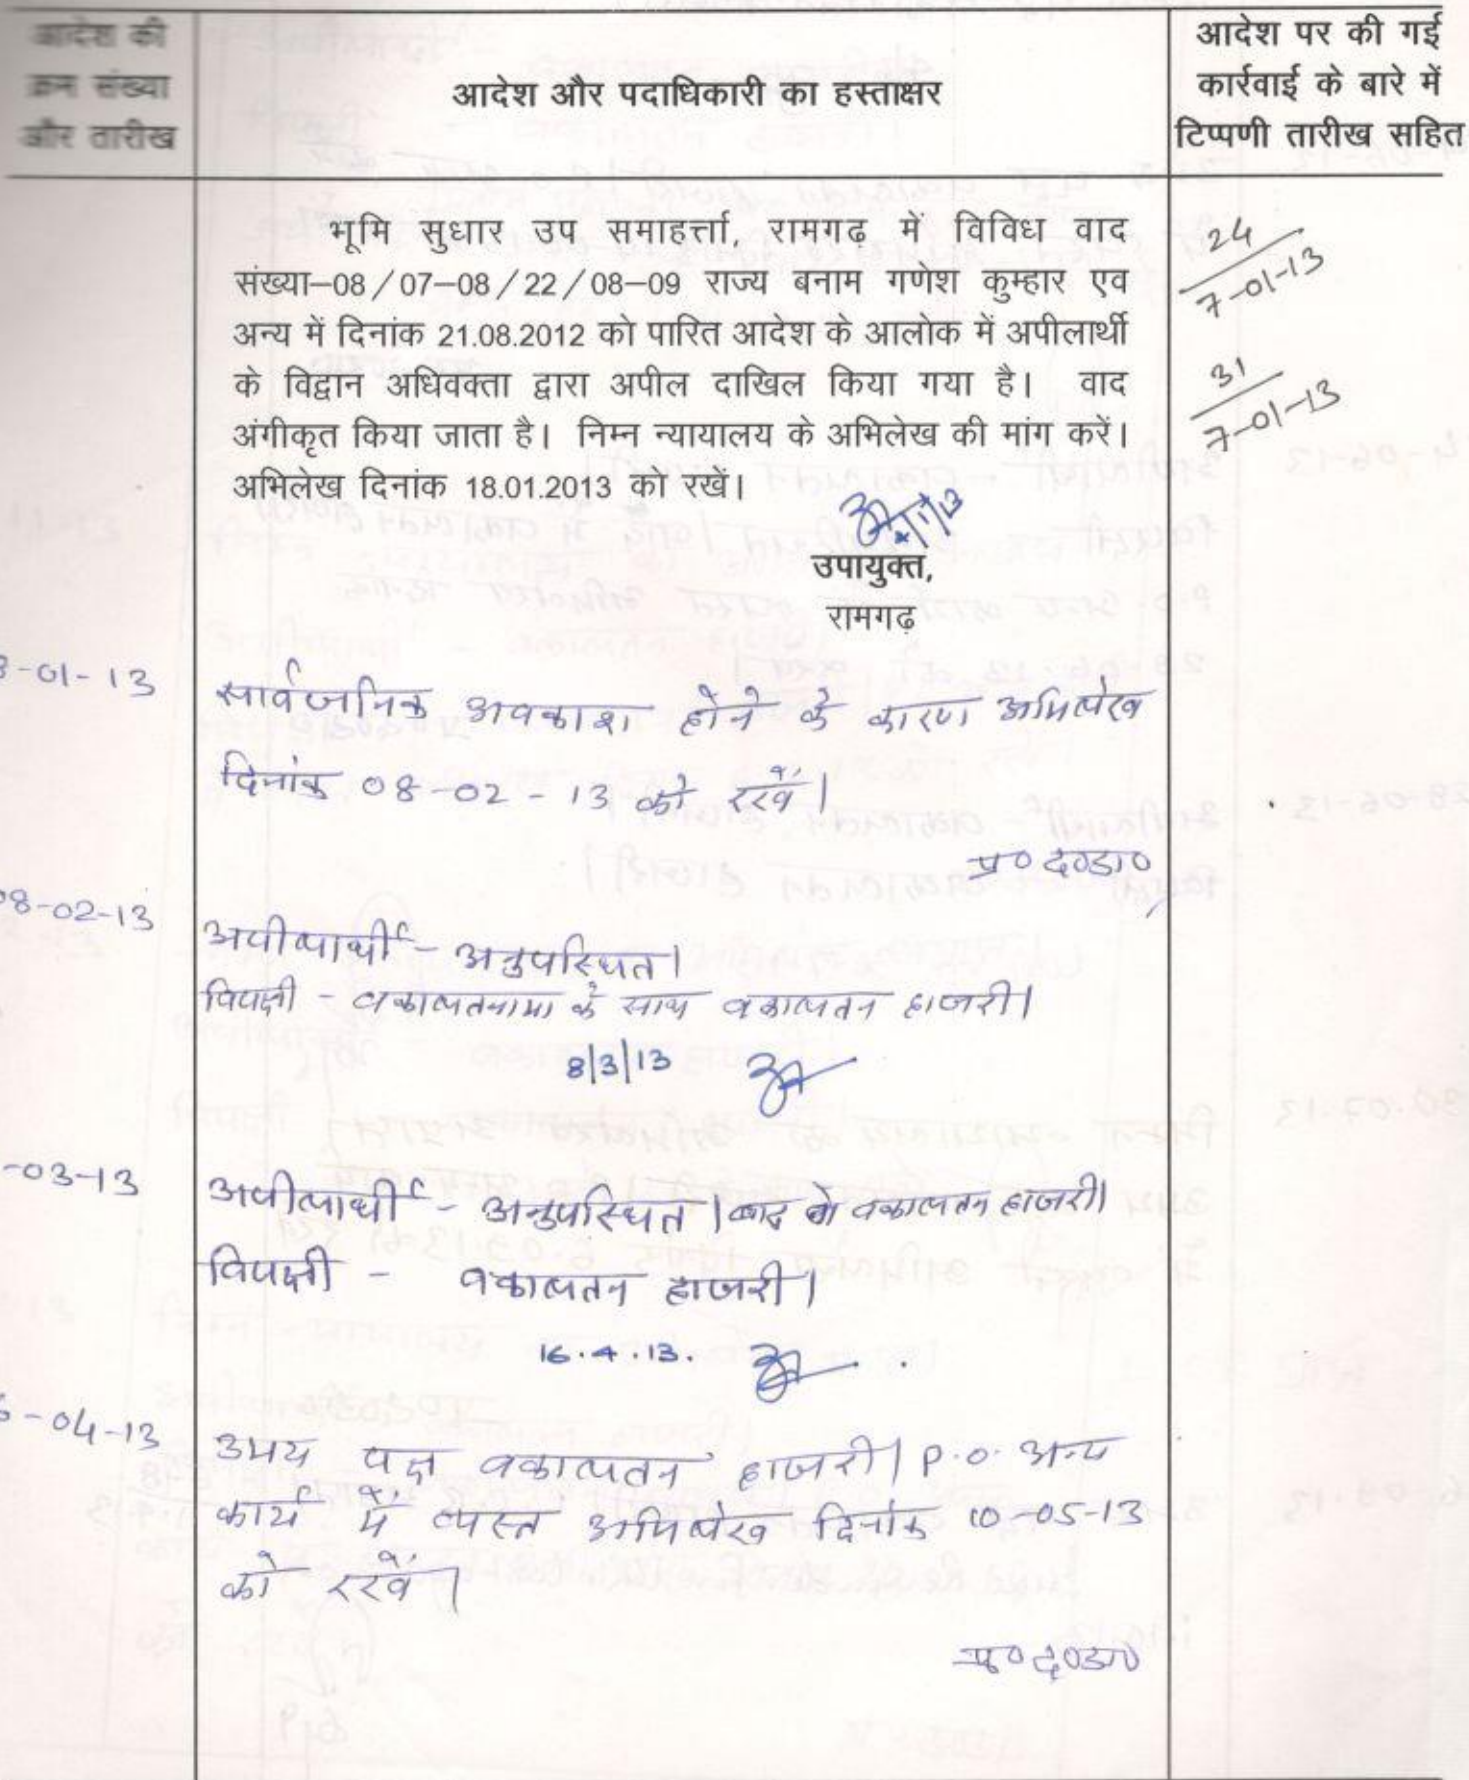 आदेश की
क्रम संख्या
और तारीख
आदेश और पदाधिकारी का हस्ताक्षर
आदेश पर की गई
कार्रवाई के बारे में
टिप्पणी तारीख सहित
भूमि सुधार उप समाहर्त्ता, रामगढ़ में विविध वाद
संख्या–08/07–08/22/08–09 राज्य बनाम गणेश कुम्हार एव
अन्य में दिनांक 21.08.2012 को पारित आदेश के आलोक में अपीलार्थी
के विद्वान अधिवक्ता द्वारा अपील दाखिल किया गया है। वाद
अंगीकृत किया जाता है। निम्न न्यायालय के अभिलेख की मांग करें।
अभिलेख दिनांक 18.01.2013 को रखें।
24
7-01-13
31
7-01-13
उपायुक्त,
रामगढ़
8-01-13
सार्वजनिक अवकाश होने के कारण अभिलेख
दिनांक 08-02-13 को रखें।
प्र० द०डा०
08-02-13
अपीलार्थी - अनुपस्थित।
विपक्षी - वकालतनामा के साथ वकालतन हाजरी।
8/3/13
-03-13
अपीलार्थी - अनुपस्थित। बाद में वकालतन हाजरी।
विपक्षी - वकालतन हाजरी।
16.4.13.
6-04-13
उभय पक्ष वकालतन हाजरी। P.O. अन्य
कार्य में व्यस्त अभिलेख दिनांक 10-05-13
को रखें।
प्र० द०डा०